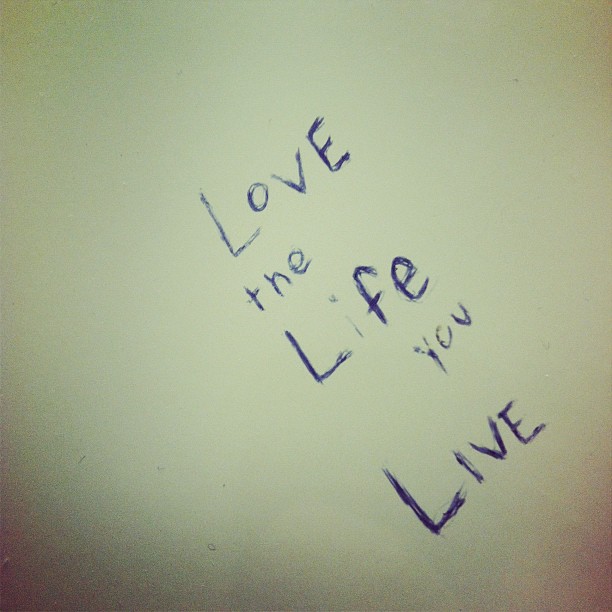 LOVE
the
Life
you
LIVE